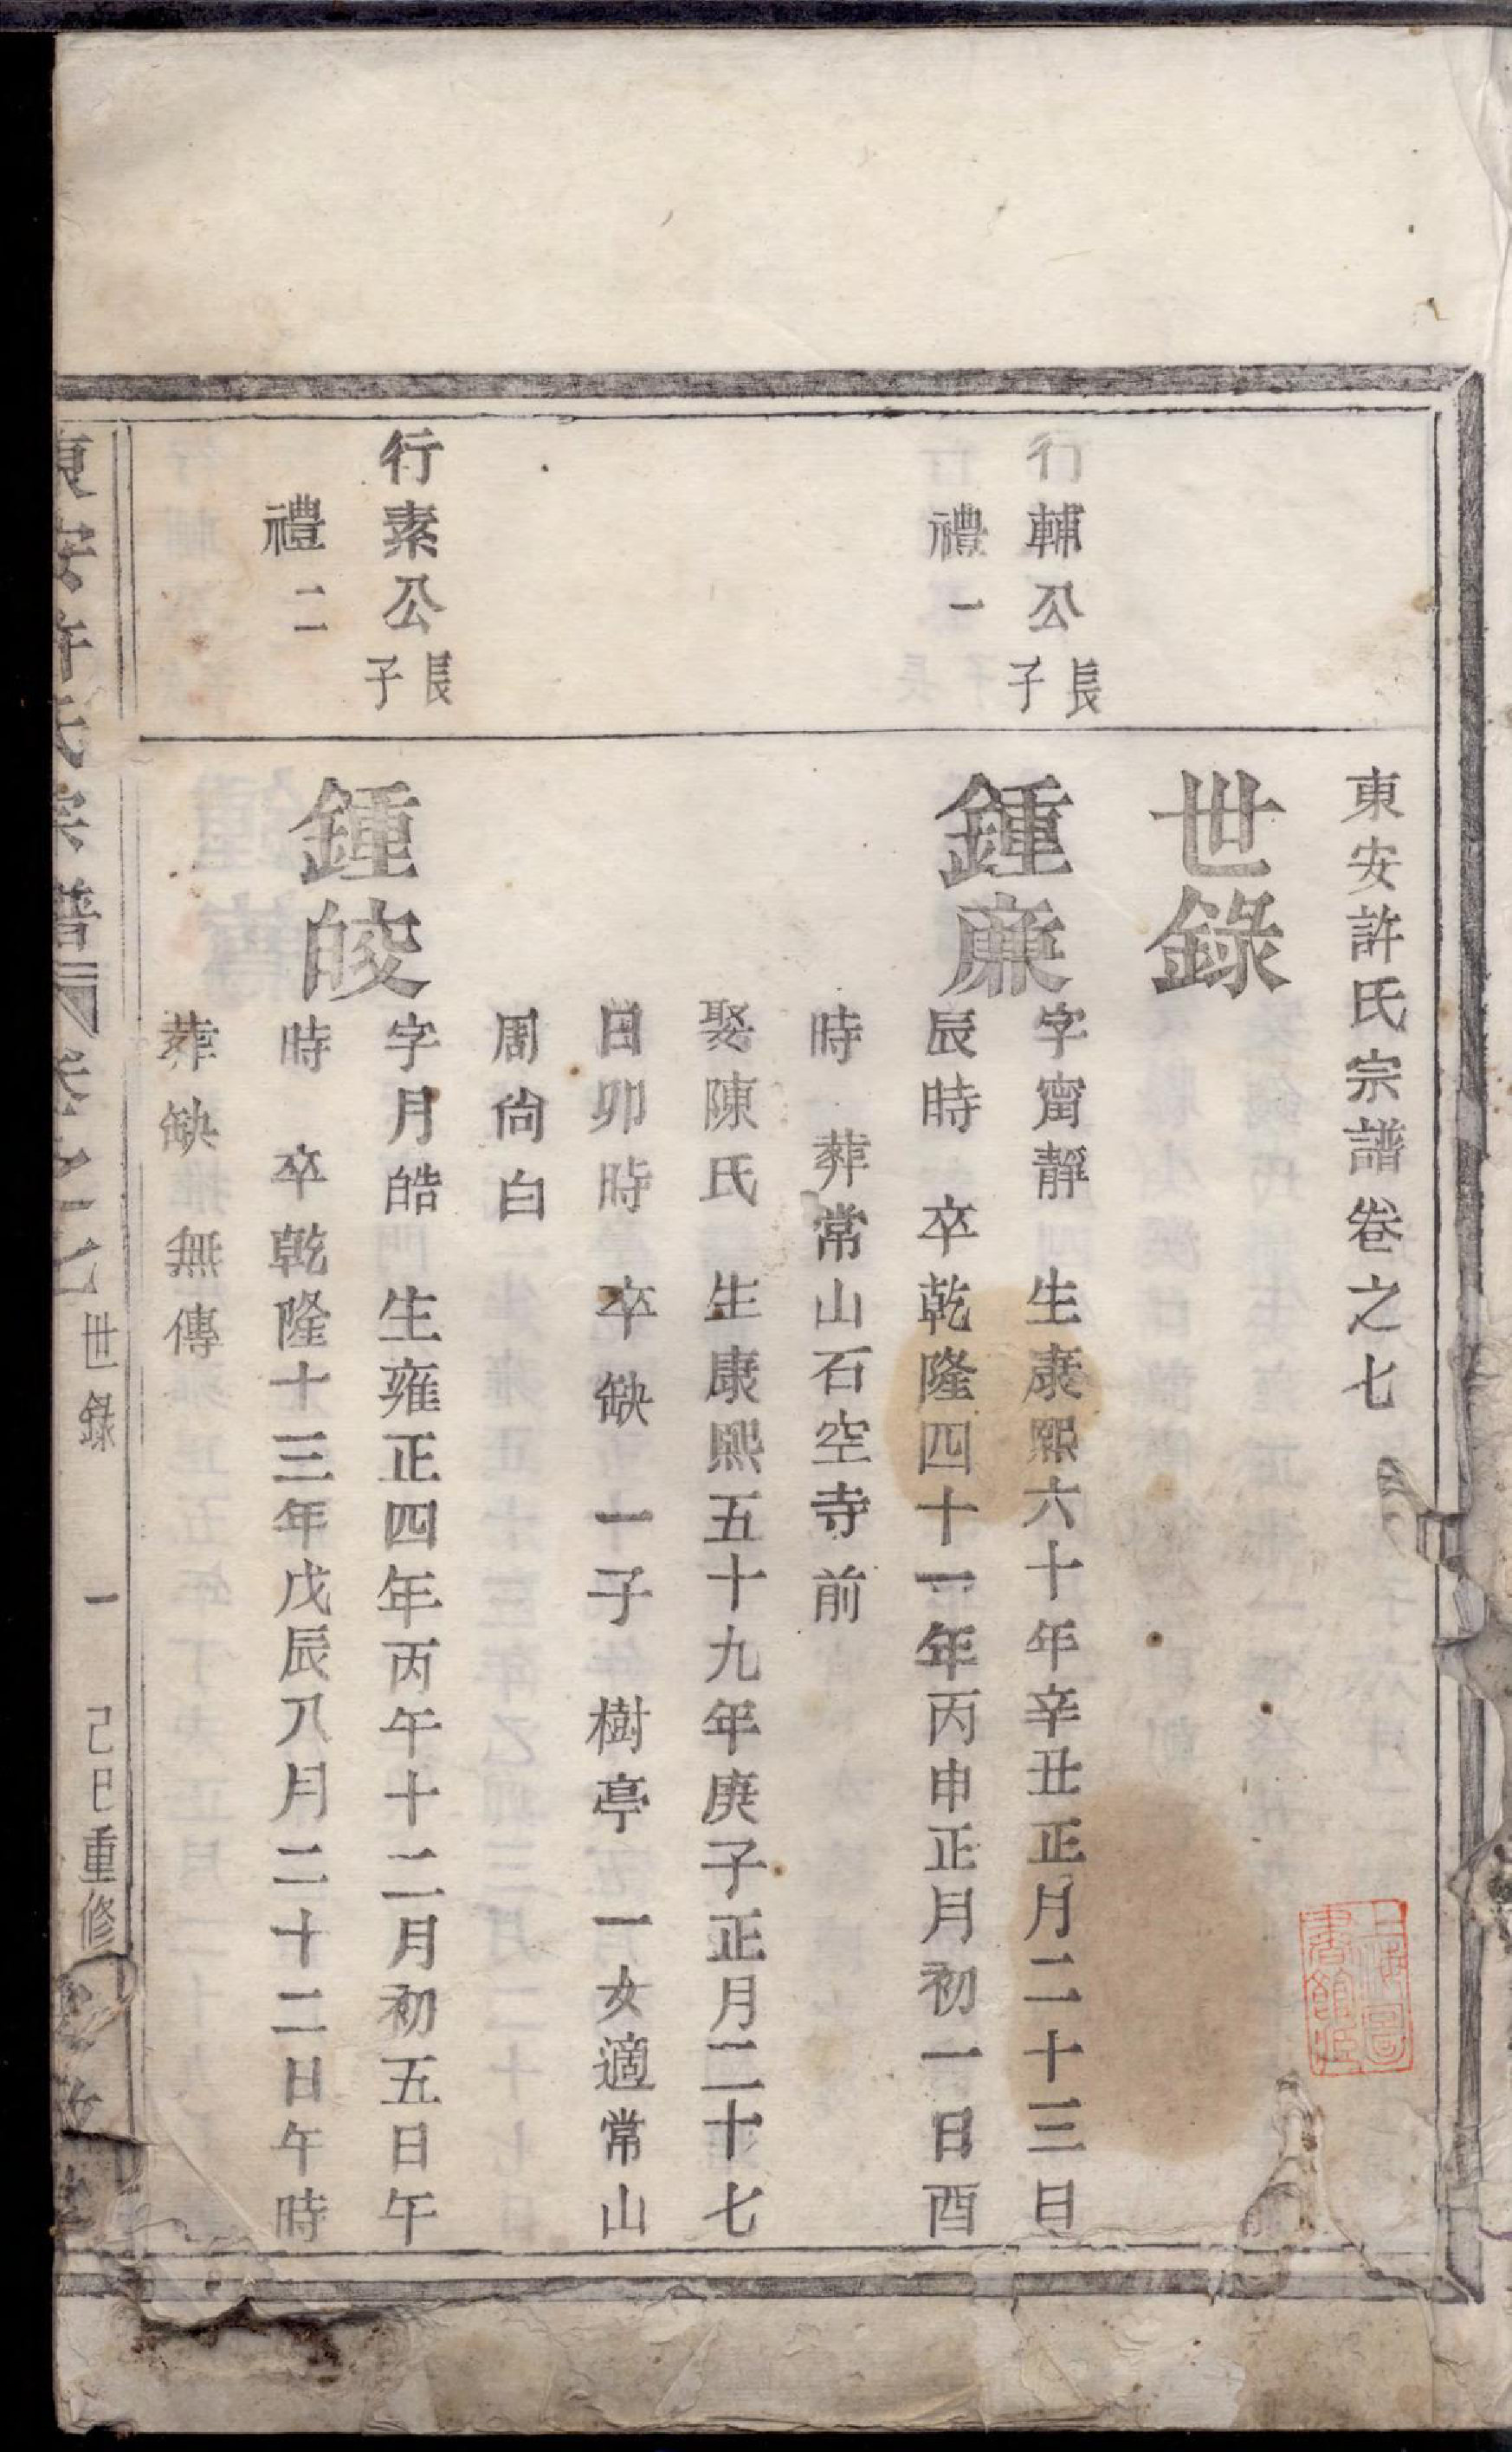 東安許氏宗譜卷之七
上海圖書館藏
世錄
行輔公長子
禮一
鍾廉
字甯靜 生康熙六十年辛丑正月二十三日
辰時 卒乾隆四十一年丙申正月初一日酉
時 葬常山石空寺前
娶陳氏 生康熙五十九年庚子正月二十七
日卯時 卒缺 一子 樹亭 一女適常山
周尙白
行素公長子
禮二
鍾皎
字月皓 生雍正四年丙午十二月初五日午
時 卒乾隆十三年戊辰八月二十二日午時
葬缺 無傳
東安許氏宗譜 卷之七 世錄 一 己巳重修